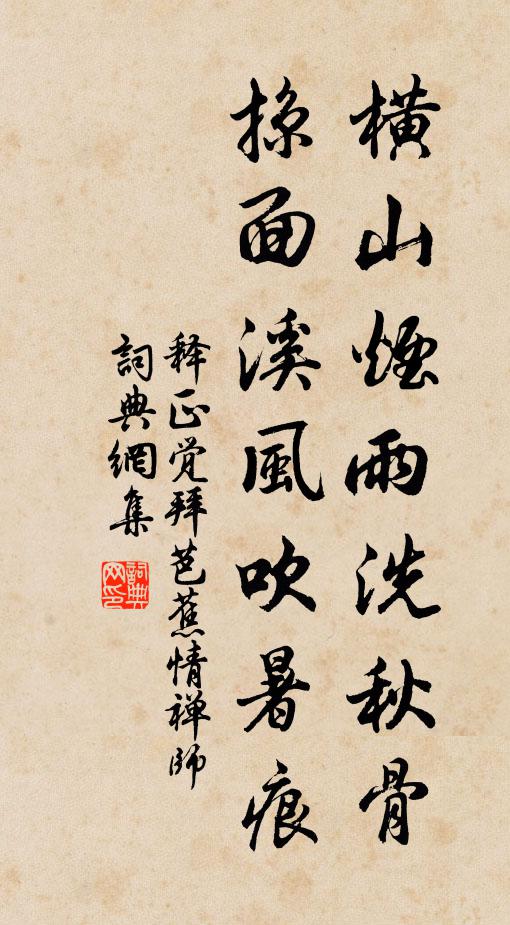 橫山煙雨洗秋骨
掠面溪風吹暑痕
释正觉拜芭蕉情禅師
詞典網集
詞典網印